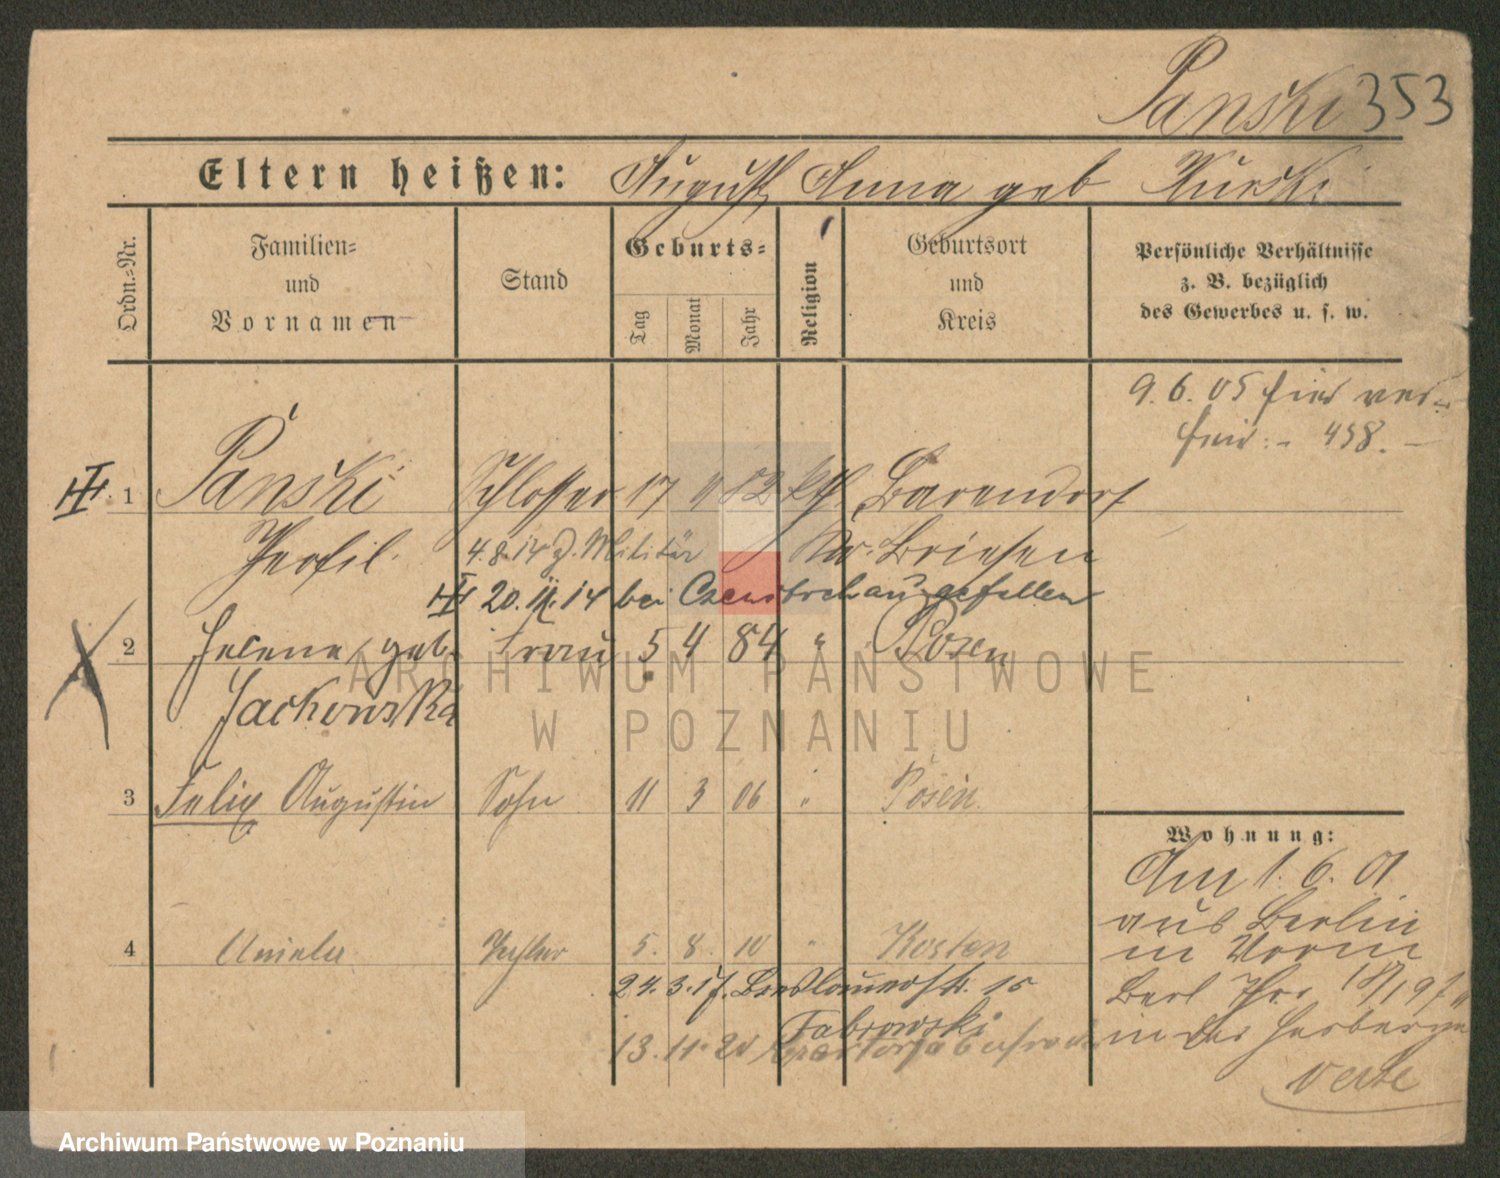 Pański 353
Eltern heißen: August, Anna geb Kurski
Ordn.-Nr.
Familien-
und
Vornamen
Stand
Geburts-
Tag
Monat
Jahr
Religion
Geburtsort
und
Kreis
Persönliche Verhältnisse
z. B. bezüglich
des Gewerbes u. s. w.
9. 6. 05 hier ver-
heir: - 458. -
1 Pański Schlosser 17 11 82 kth Barendorf
4.8.14 z. Militär Kr. Briesen
20. 11. 14 bei Czenstochau gefallen
2 Helene, geb. Frau 5 4 84 " Posen
Jackowska
3 Felix Augustin Sohn 11 3 06 " Posen
Wohnung:
Am 1. 6. 01
aus Berlin
4 Aniela Tochter 5. 8. 10 " Kosten
in Vorm
24. 3. 17. Breslauerstr. 15
in der Herberge
Fabrowski
13. 11. 20
verte
ARCHIWUM PAŃSTWOWE
W POZNANIU
Archiwum Państwowe w Poznaniu